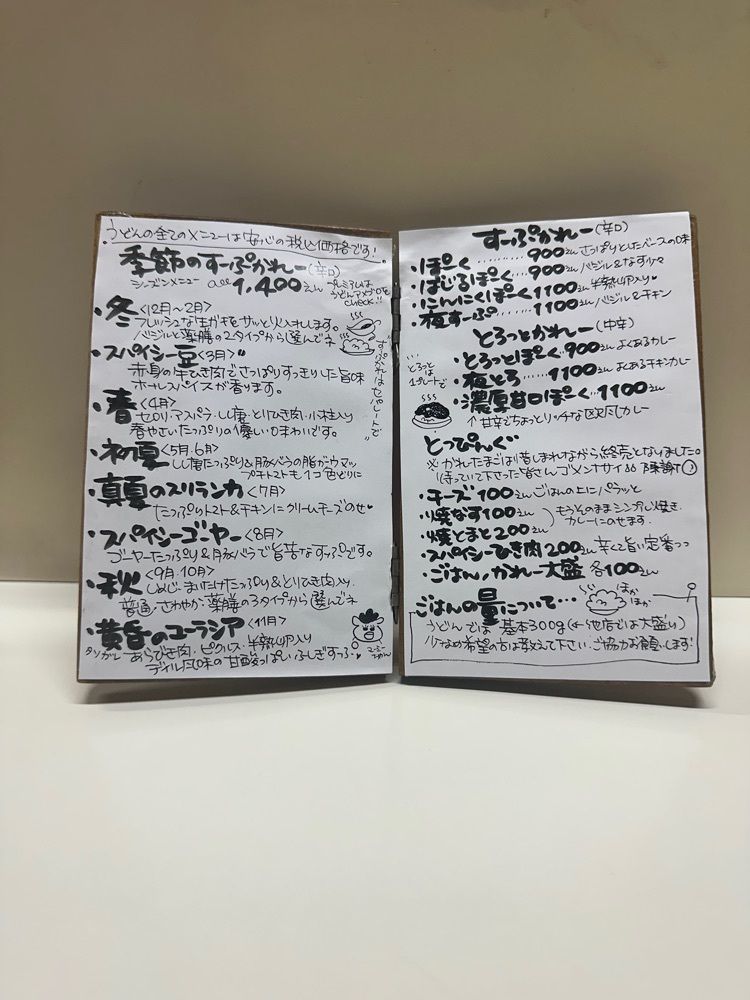 うどんの全てのメニューは安心の税込価格です!
季節のすーぷかれー(辛口)
シーズンメニュー all 1,400えん
プレミアムは
うどんアメブロを
check!!
・冬<12月〜2月>
フレッシュな生かきをサッと火入れします。
バジルと薬膳の2タイプから選んでネ
すーぷかれはセパレートで♥
・スパイシー豆<3月>
赤身の牛ひき肉でさっぱりすっきりした旨味
ホールスパイスが香ります。
・春<4月>
セロリ・アスパラ・しし唐・とりひき肉・小柱入り
春やさいたっぷりの優しい味わいです。
・初夏<5月.6月>
しし唐たっぷり&豚バラの脂がウマッ
プチトマトも1コ色どりに
・真夏のスリランカ<7月>
たっぷりトマト&チキンにクリームチーズのせ♥
・スパイシーゴーヤー<8月>
ゴーヤーたっぷり&豚バラで旨苦なすっぷです。
・秋<9月.10月>
しめじ・まいたけたっぷり&とりひき肉入り.
普通・さわやか・薬膳の3タイプから選んでネ
・黄昏のユーラシア<11月>
あらびき肉・ピクルス・半熟卵入り
ディルた味の甘酸っぱいふしぎすっぷ〜♥
すーぷかれー(辛口)
・ぽーく……900えん さっぱりとしたベースの味
・ばじるぽーく…900えん バジル&なす少々
・にんにくぽーく1100えん 半熟卵入り♥
・夜すーぷ…1100えん バジル&チキン
とろっとかれー(中辛)
…とろっとは
1プレートで…
・とろっとぽーく900えん よくあるカレー
・夜とろ…1100えん よくあるチキンカレー
・濃厚甘口ぽーく…1100えん
↑甘辛でちょっとリッチな欧風カレー
とっぴんぐ
※かれたまごは惜しまれながら終売となりました。
(待っていて下さった皆さんゴメンナサイ&感謝)
・チーズ100えん ごはんの上にパラッと
・焼なす100えん
・焼とまと200えん
もうそのままシンプル焼き.
カレーにのせます.
・スパイシーひき肉200えん 辛くて旨い定番っつ
・ごはん,かれー大盛 各100えん
ごはんの量について…
ほか
ほか
うどんでは 基本300g(←他店では大盛り)
少なめ希望の方は教えて下さい.ご協力お願いします!